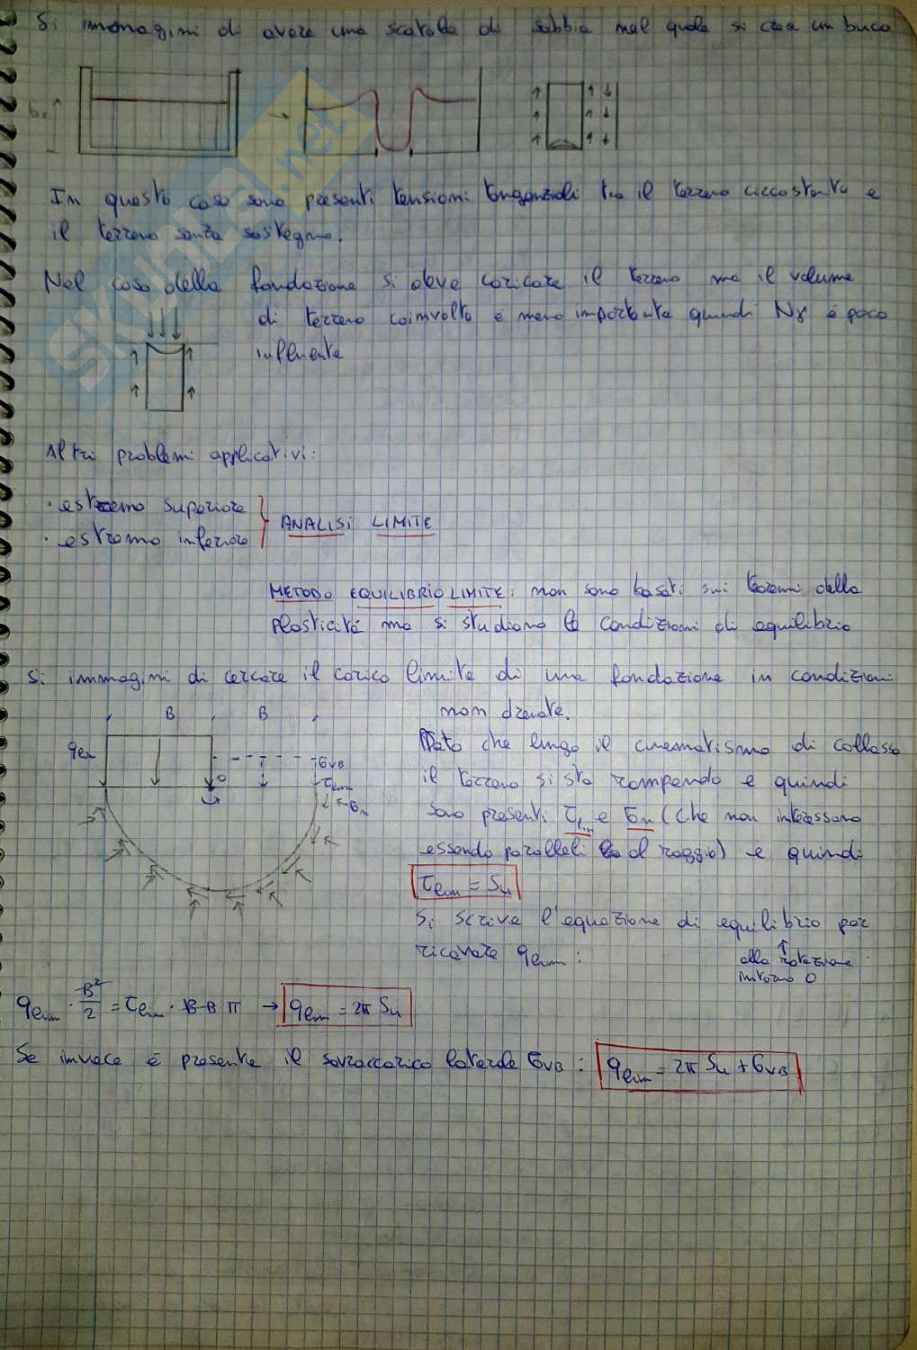 Si immagini di avere una scatola di sabbia nel quale si crea un buco
In questo caso sono presenti tensioni tangenziali tra il terreno circostante e
il terreno senza sostegno.
Nel caso della fondazione si deve caricare il terreno ma il volume
di terreno coinvolto è meno importante quindi Nγ è poco
influente
Altri problemi applicativi:
· estremo superiore
· estremo inferiore
ANALISI LIMITE
METODO EQUILIBRIO LIMITE: non sono basati sui teoremi della
plasticità ma si studiano le condizioni di equilibrio
Si immagini di cercare il carico limite di una fondazione in condizioni
non drenate.
B B
qlim
σvB
τlim
σn
O
Dato che lungo il cinematismo di collasso
il terreno si sta rompendo e quindi
sono presenti τlim e σn (che non interessano
essendo paralleli al raggio) e quindi
τlim = Su
Si scrive l'equazione di equilibrio per
ricavare qlim:
↑
alla rotazione
intorno O
qlim · B²/2 = τlim · B·B π → qlim = 2π Su
Se invece è presente il sovraccarico laterale σvB: qlim = 2π Su + σvB
skuola.net